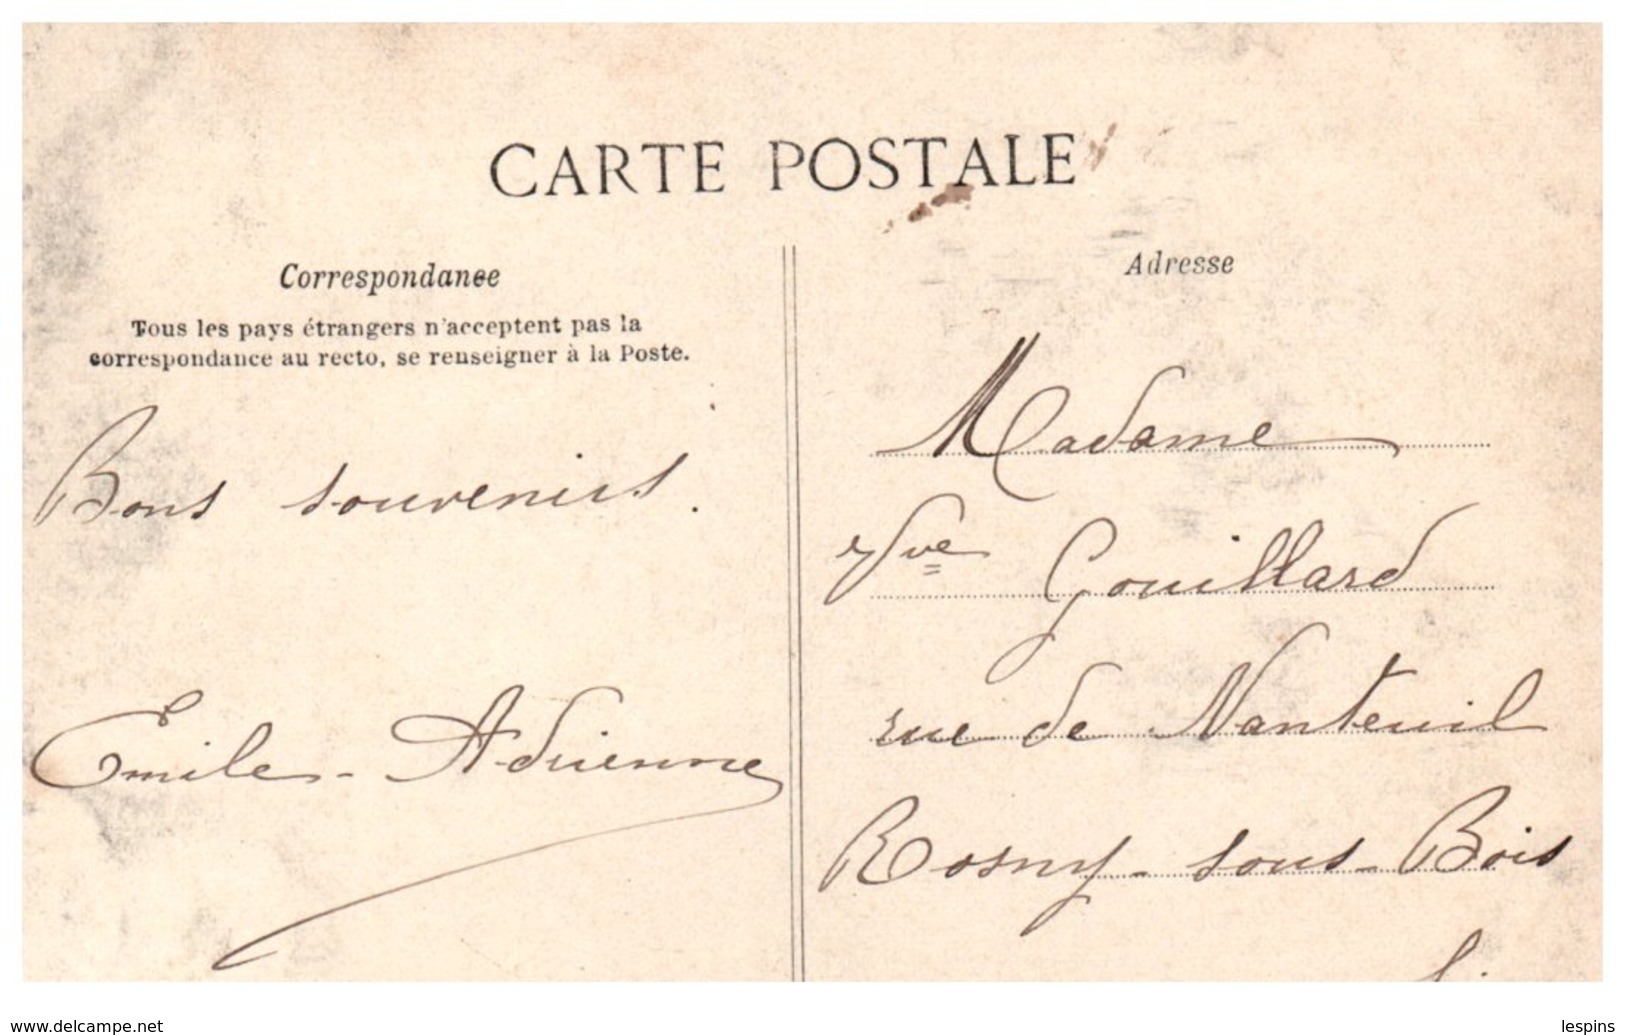 CARTE POSTALE
Correspondance
Tous les pays étrangers n'acceptent pas la
correspondance au recto, se renseigner à la Poste.
Bons souvenirs.
Emile - Adrienne
Adresse
Madame
Vve Gouillard
rue de Nanteuil
Rosny-sous-Bois
www.delcampe.net
lespins